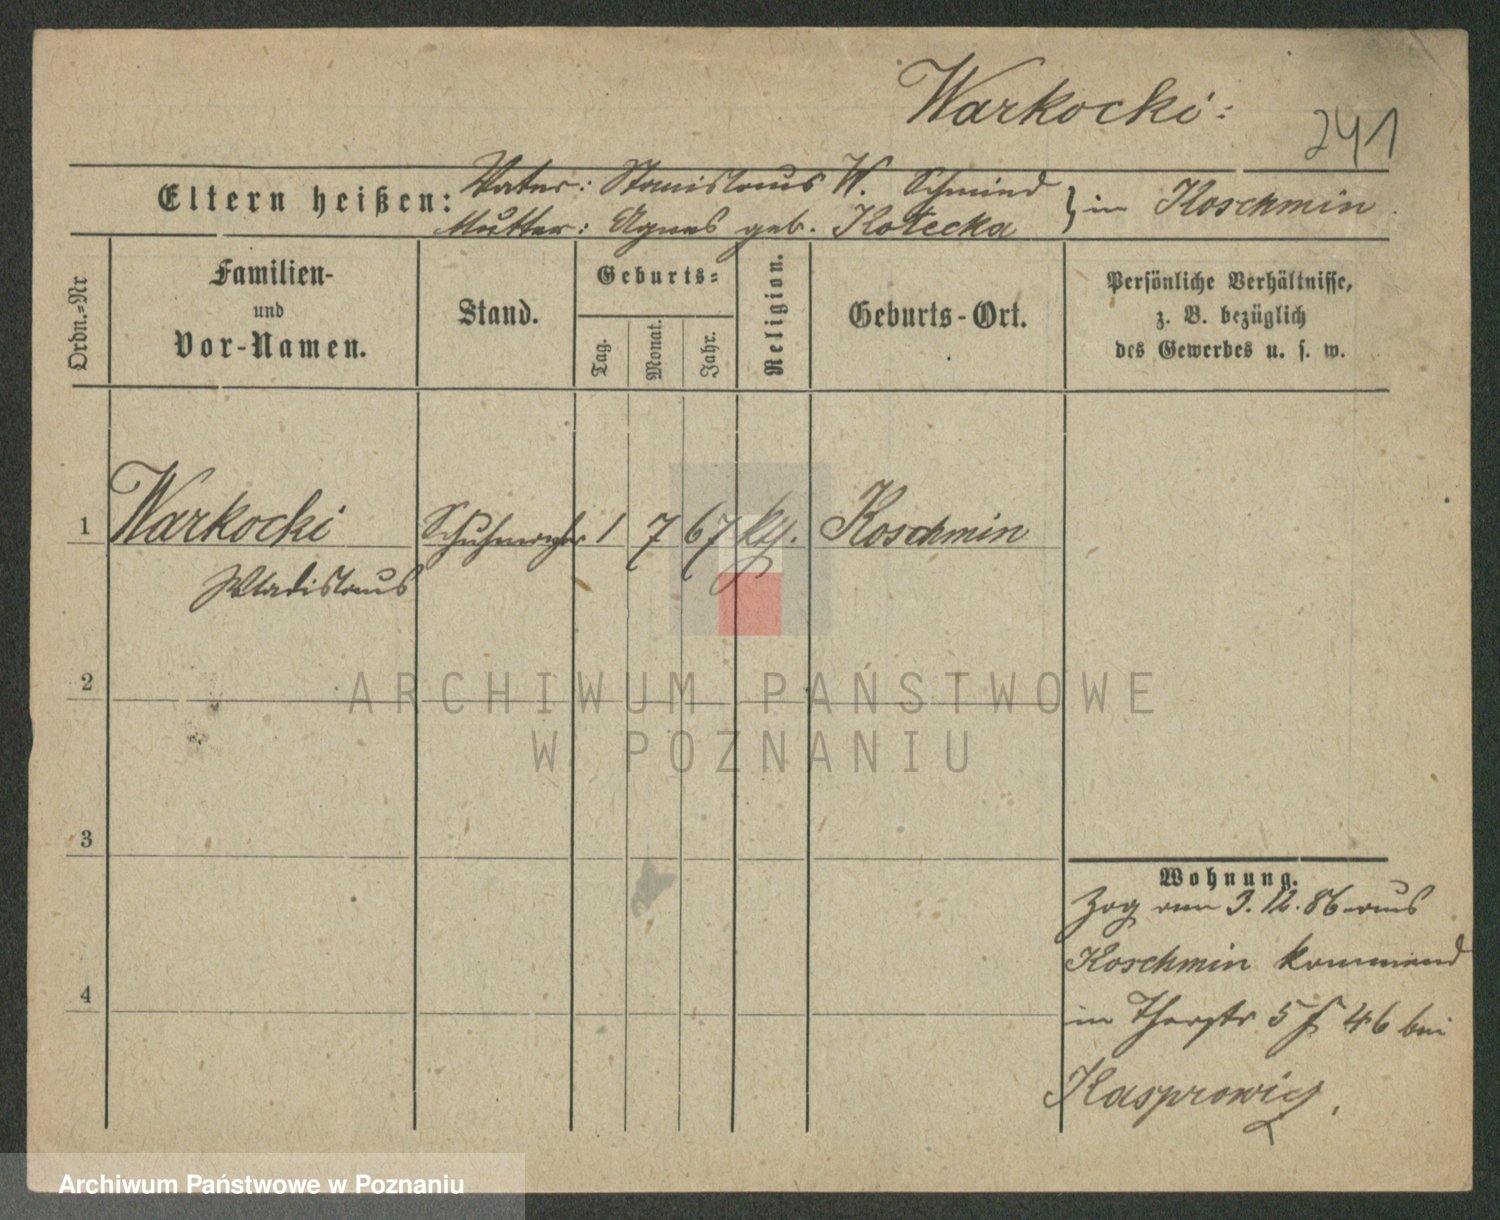 Warkocki:
241
Eltern heißen: Vater: Stanislaus W. Schmied
Mutter: Agnes geb. Kotecka } in Koschmin.
Ordn.=Nr
Familien-
und
Vor-Namen.
Stand.
Geburts=
Tag.
Monat.
Jahr.
Religion.
Geburts-Ort.
Persönliche Verhältnisse,
z. B. bezüglich
des Gewerbes u. s. w.
1 Warkocki Schuhmacher 1 7 67 kth. Koschmin
Wladislaus
2
ARCHIWUM PAŃSTWOWE
W POZNANIU
3
Wohnung.
Zog am 3.12.86 aus
Koschmin kommend
4
in 46 bei
Kasprowicz.
Archiwum Państwowe w Poznaniu